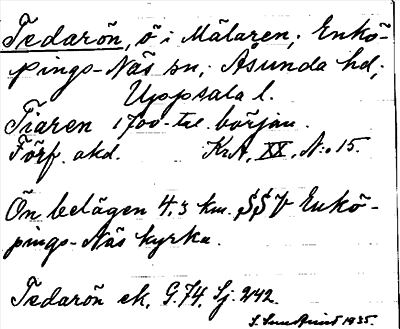 Tedarön, ö i Mälaren, Enkö-
pings-Näs sn, Åsunda hd,
Uppsala l.
Tiaren 1700-tal. början.
Förf. okd. KrA, XX, N:o 15.
Ön belägen 4.3 km. SSV Enkö-
pings-Näs kyrka.
Tedarön ek. G. 74, Sj. 242.
1935